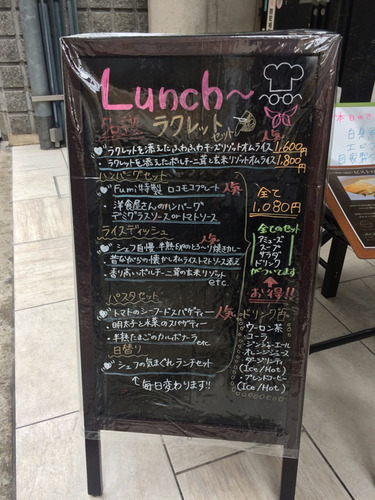 Lunch〜
ラクレットセット 人気
♥ラクレットを添えたふわふわチーズリゾットオムライス 1,600円
・ラクレットを添えたポルチーニ茸と玄米リゾットオムライス 1,800円
ハンバーグセット
♥Fumi特製 ロコモコプレート 人気
・洋食屋さんのハンバーグ
デミグラスソース or トマトソース
ライスディッシュ
♥シェフ自慢 半熟玉子のとろ〜り焼きカレー
・昔ながらの懐かしオムライストマトソース添え
・香り高いポルチーニ茸の玄米リゾット
etc.
パスタセット
♥トマトのシーフードスパゲティー 人気
・明太子と水菜のスパゲティー
・半熟たまごのカルボナーラ
etc
日替り
♥シェフの気まぐれランチセット
↑毎日変わります!!
全て
1,080円
全てのセット
アミューズ
スープ
サラダ
ドリンク
がついてます
↑
お得!!
ドリンク
ウーロン茶
コーラ
ジンジャーエール
オレンジジュース
ダージリンティー
(Ice/Hot)
ブレンドコーヒー
(Ice/Hot)
本日の